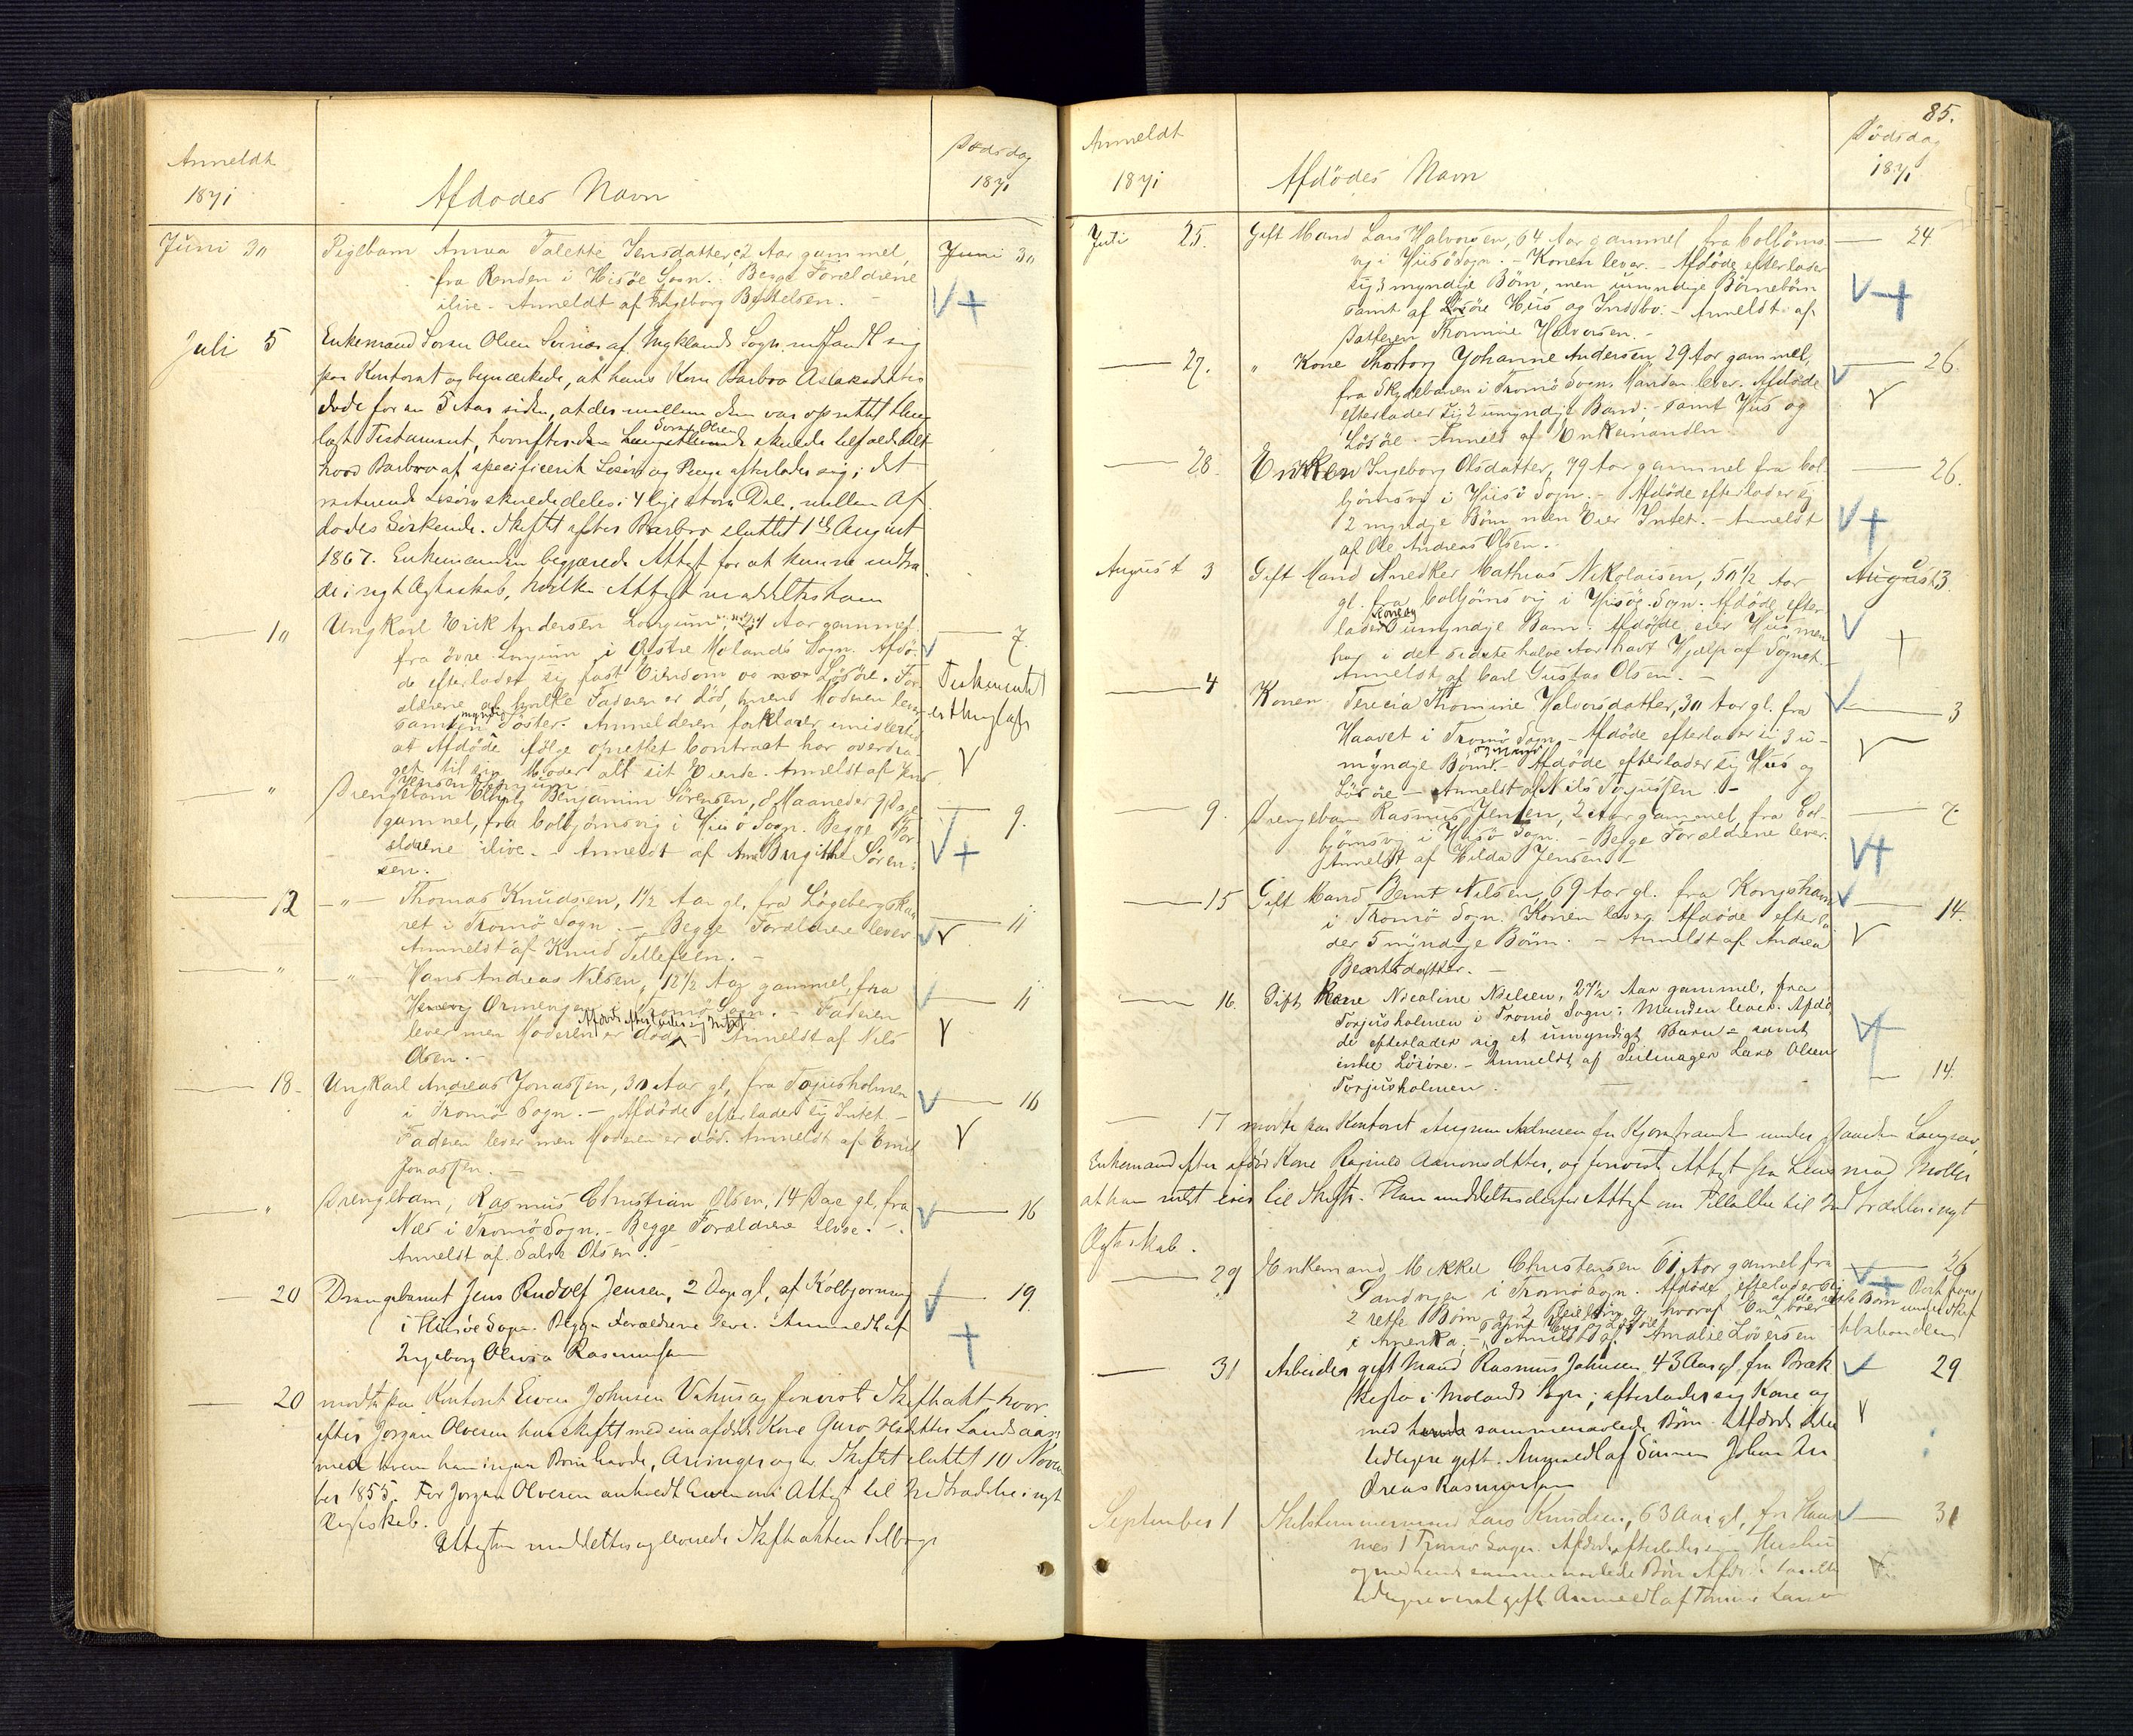 Anmeldt
1871
Afdødes Navn
Dødsdag
1871
Juni 30 Pigebarn Anna Talette Jensdatter, 2 Aar gammel, Juni 30
fra Renden i Hisöe Sogn. Begge Forældrene
ilive. - Anmeldt af Ingeborg Bertelsen. -
Juli 5 Enkemand Soren Olsen af Sogn indfandt sig
paa Kontoret og bemærkede, at hans Kone Barbra Aslaksdatter
døde for en 5 Aar siden, at der mellem dem var oprettet
Testament, hvorefter Soren Olsen skulde beholde alt
hvad Barbra af specificeret Løsøre og Penge efterlader sig; det
resterende Løsøre skulde deles i 4 lige store Dele, mellem Af
dødes Søskende. Skiftet efter Barbra sluttet 1ste August
1867. Enkemanden begjærede Attest for at kunne indtræ
de i nyt Ægteskab, hvilken Attest meddeltes ham
— 10 Ungkarl Erik Andersen Longum, Aar gammel — 7.
fra övre Longum i Østre Molands Sogn. Afdø-
de efterlader sig fast Eiendom og Lösöre. For
ældrene af hvilke Faderen er död, mens Moderen lever
samt myndig Söster. Anmelderen forklarer
at Afdöde ifölge oprettet Contract har overdra
get til sin Moder alt sit Eiende. Anmeldt af Jens
Jensen Longum
Testamentet
er thinglæst
— " Drengebarn Benjamin Sörensen, 8 Maaneder 9 Dage — 9.
gammel, fra Colbjörnsvig i Hisö Sogn. Begge For
ældrene ilive. - Anmeldt af Ane Birgithe Sören-
sen.
— 12 — " — Thomas Knudsen, 1½ Aar gl. fra Lögebergskaa — 11
ret i Tromö Sogn. - Begge Forældrene lever
Anmeldt af Knud Tellefsen. -
— " — " — Hans Andreas Nilsen, 12½ Aar gammel, fra — 11
i Tromö Sogn. - Faderen
lever men Moderen er död - Afdöde efterlader sig Intet Anmeldt af Nils
Olsen. -
— 18 - Ungkarl Andreas Jonassen, 30 Aar gl, fra Tojusholmen — 16
i Tromö Sogn. - Afdöde efterlader sig Intet. -
Faderen lever men Moderen er död. Anmeldt af Emil
Jonassen. -
— " Drengebarn, Rasmus Christian Olsen, 14 Dage gl, fra — 16
Næs i Tromö Sogn. - Begge Forældrene ilive. -
Anmeldt af Salve Olsen. -
— 20 Drengebarnet Jens Rudolf Jensen, 2 Dage gl, af Kolbjørnsvig — 19.
i Hisöe Sogn. Begge Forældrene leve. Anmeldt af
Ingeborg Olivia Rasmussen
— 20 mødte paa Kontoret Johnsen og foreviste Skifteakt hvor
efter Jorgen Olvesen har skiftet med sin afdøde Kone Guro Landsaas,
med hvem han ingen Børn havde, Arvinger og Skiftet sluttet 10 Novem
ber 1855. For Jorgen Olvesen anholdt om Attest til Indtrædelse i nyt
Ægteskab.
Attesten meddeltes og leverede Skifteakten tilbage
85.
Anmeldt
1871
Afdödes Navn
Dödsdag
1871
Juli 25. Gift Mand Lars Halvorsen, 64 Aar gammel fra Colbörns- — 24
vig i Hisö Sogn. - Konen lever. - Afdöde efterlader
sig 3 myndige Börn, men umyndige Börnebörn
samt af Lösöre Hus og Indbo. - Anmeldt af
Datteren Thomine Halvorsen. -
— 27. " Kone Thorborg Johanne Andersen 29 Aar gammel, — 26
fra Skydebanen i Tromö Sogn. Manden lever. Afdöde
efterlader sig 2 umyndige Barn. - samt Hus og
Lösöre. Anmeldt af Enkemanden
— 28. Enken Ingeborg Olsdatter, 79 Aar gammel fra Col- — 26.
björnsvig i Hisö Sogn. - Afdöde efterlader sig
2 myndige Börn men Eier Intet. - Anmeldt
af Ole Andreas Olsen. -
August 3 Gift Mand Snedker Mathias Nikolaisen, 50½ Aar August 3.
gl. fra Colbjörnsvig i Hisöe Sogn. Afdöde efter
lader Kone og umyndige Barn. Afdöde eier Hus men
har i det sidste halve Aar havt Hjælp af Sognet. -
Anmeldt af Carl Gustav Olsen. -
— 4 Konen Tericia Thomine Halvorsdatter, 30 Aar gl. fra — 3
Haavet i Tromö Sogn. - Afdöde efterlader sig 3 u-
myndige Börn. - Afdöde efterlader sig Hus og
Lösöre - Anmeldt af Nils Tojusen. -
— 9. Drengebarn Rasmus Jensen, 2 Aar gammel, fra Col- — 7
björnsvig i Hisö Sogn. - Begge Forældrene lever.
Anmeldt af Hilda Jensen -
— 15 Gift Mand Bernt Nilsen, 69 Aar gl. fra Kongshavn — 14.
i Tromö Sogn. Konen lever. Afdöde efterla
der 5 myndige Börn. - Anmeldt af Andrea
Berntsdatter. -
— 16. Gift Kone Nicoline Nielsen, 27½ Aar gammel, fra
Torjusholmen i Tromö Sogn; Manden lever. Afdö
de efterlader sig et umyndigt Barn - samt
Lösöre. - Anmeldt af Seilmager Lars Olsen
Torjusholmen. — 14.
— 17 mødte paa Kontoret
Enkemand efter afdød Kone Ragnild Aanonsdatter, og foreviste Attest fra Lensmand Møller
at han intet eier til Skifte. Han meddeltes derfor Attest om Tilladelse til Indtrædelse i nyt
Ægteskab.
— 29 Enkemand Mikkel Christensen 61 Aar gammel fra — 26
Sandvigen i Tromö Sogn. Afdöde efterlader sig
2 rette Börn og 2 hvoraf En boer
i Amerika; - samt Hus og Lösöre Anmeldt af Amalie Löversen
— 31 Arbeider gift Mand Rasmus Johnsen 43 Aar gl, fra Bræk — 29
kesto i Molands Sogn; efterlader sig Kone og
med hende sammenavlede Børn. Afdøde ikke
tidligere gift. Anmeldt af Sønnen Johan An
dreas Rasmussen
September 1 Skibstømmermand Lars Knudsen, 63 Aar gl, fra — 31
næs i Tromø Sogn. Afdøde efterlader sig Hustru
og med hende sammenavlede Børn Afdøde har ikke
tidligere været gift Anmeldt af Larsen